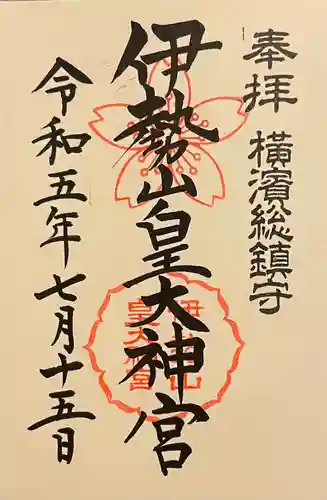 奉拝 横濱総鎮守
伊勢山皇大神宮
令和五年七月十五日
伊勢山
皇大神宮